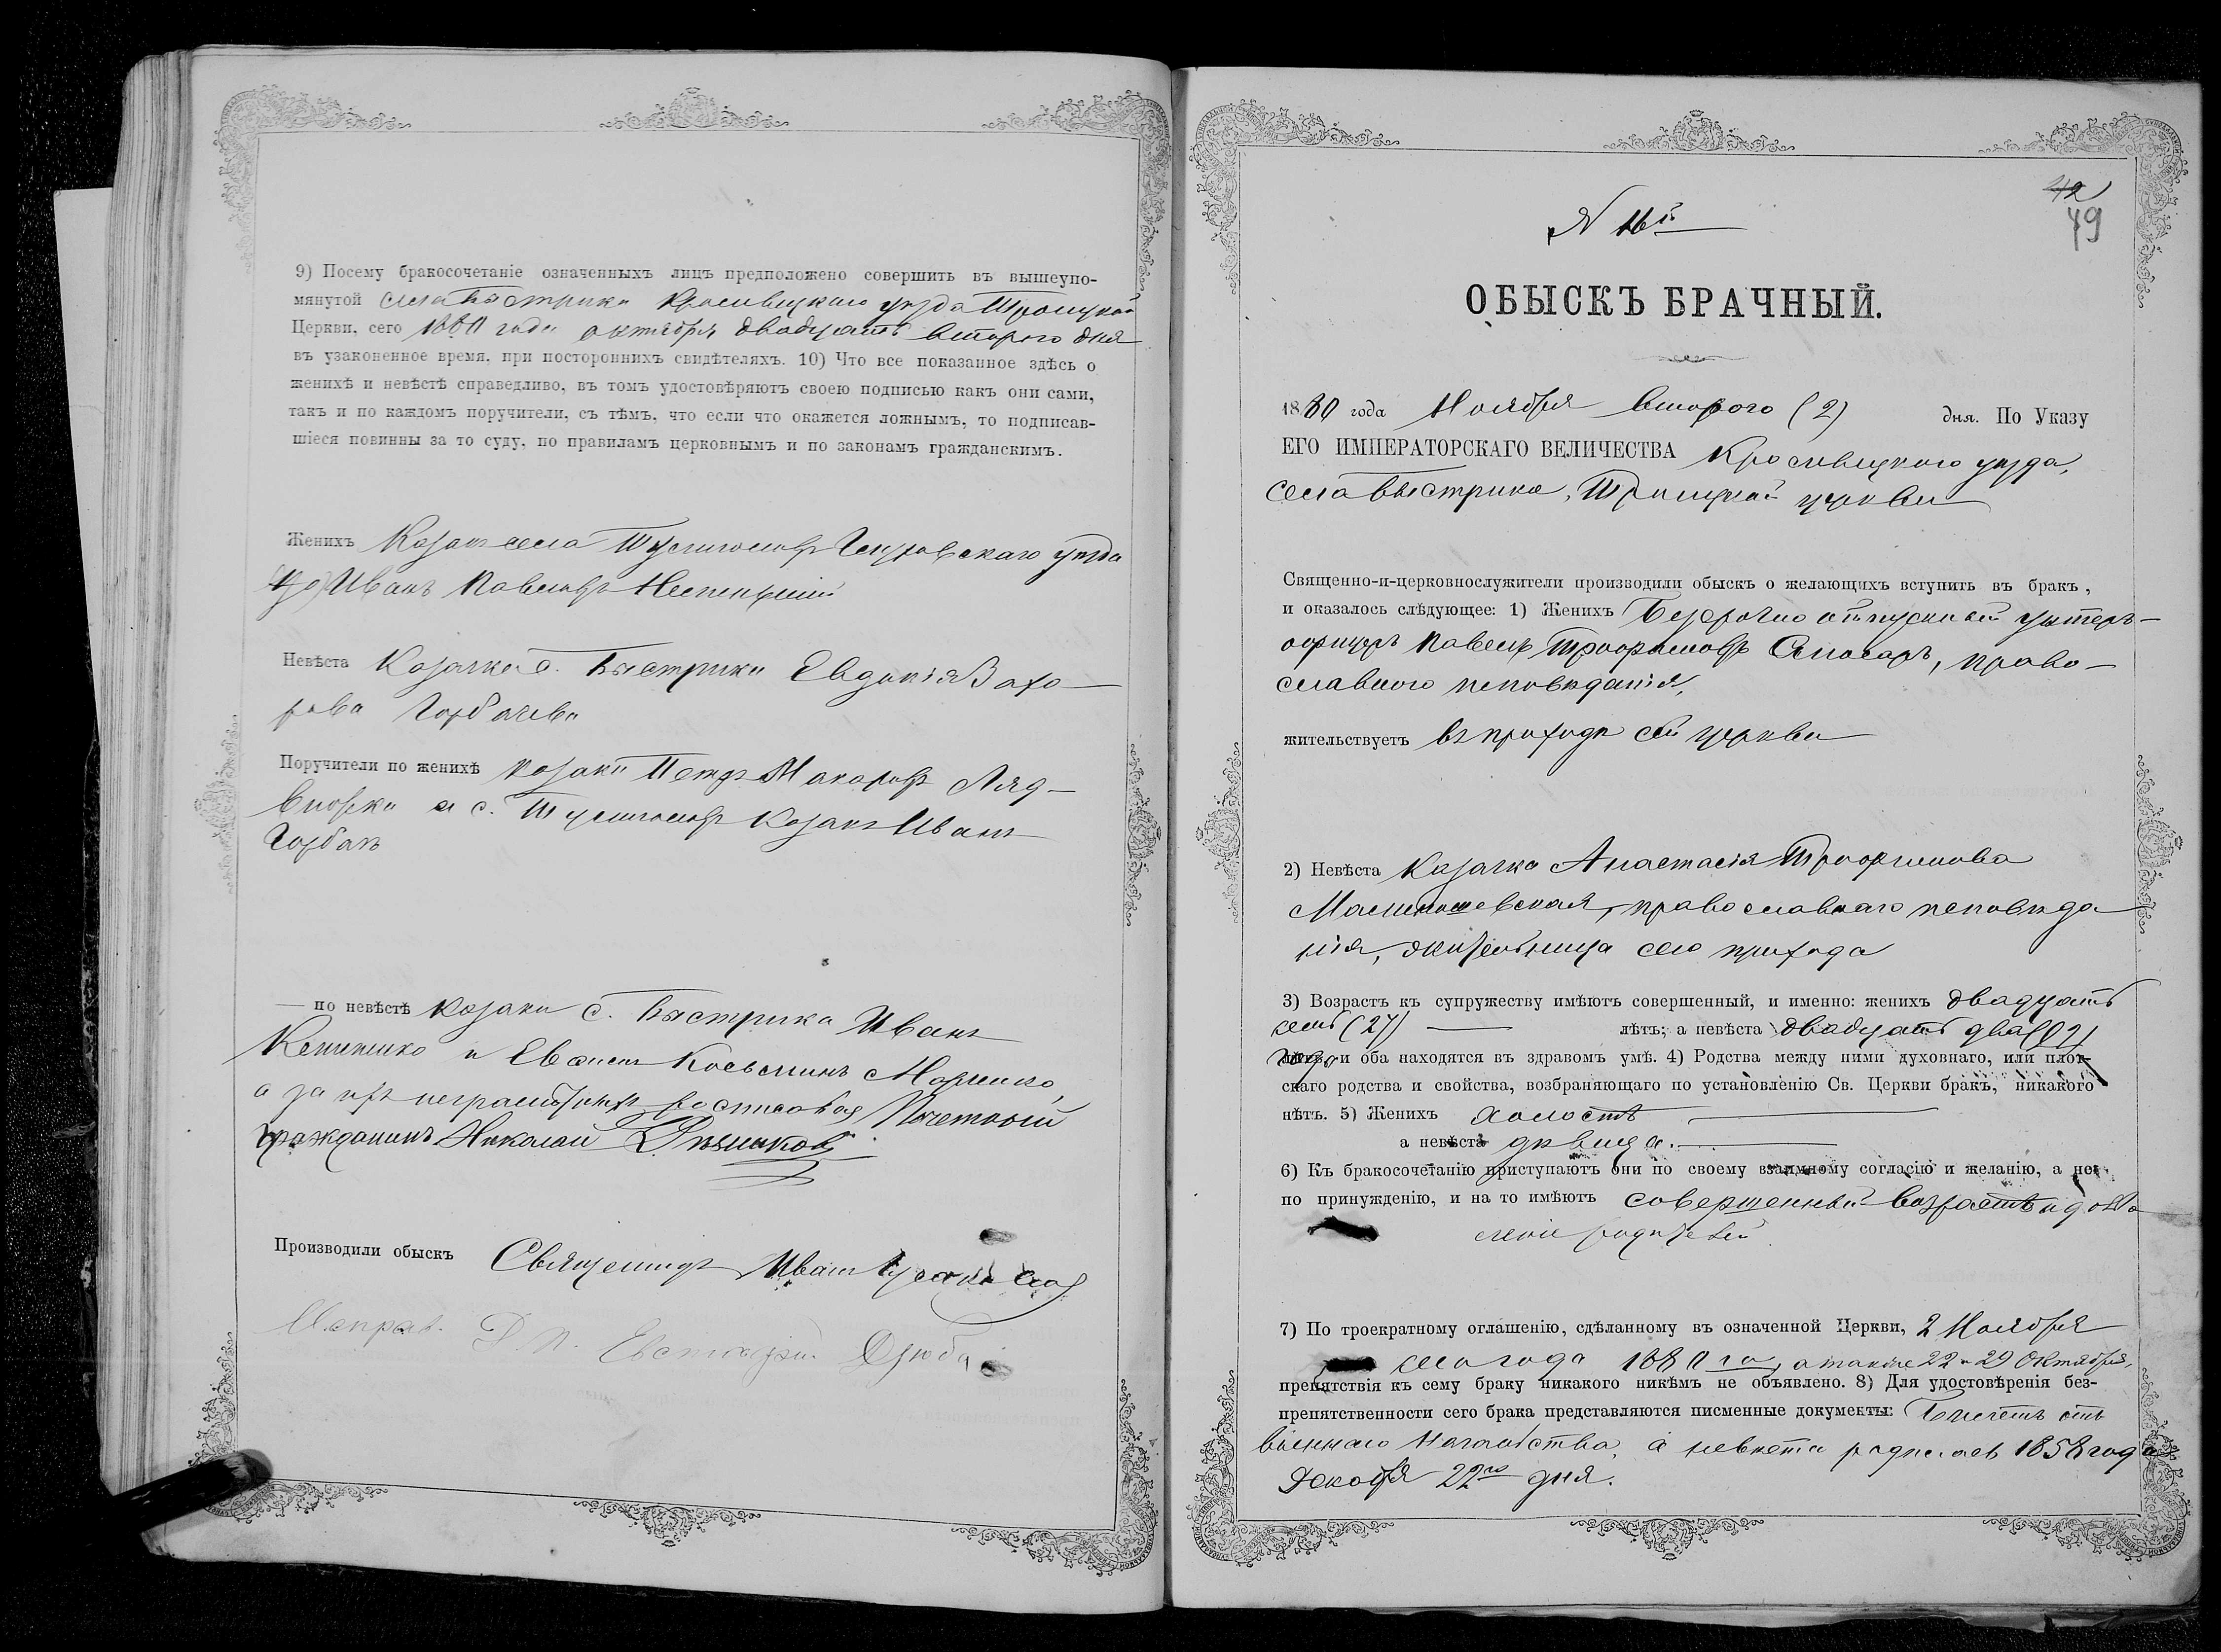 9) Посему бракосочетаніе означенныхъ лицъ предположено совершить въ вышеупо-
мянутой села Быстрика Кролевецкаго уѣзда Троицкой
Церкви, сего 1880 года октября двадцать втораго дня
въ узаконенное время, при постороннихъ свидѣтеляхъ. 10) Что все показанное здѣсь о
женихѣ и невѣстѣ справедливо, въ томъ удостовѣряютъ своею подписью какъ они сами,
такъ и по каждомъ поручители, съ тѣмъ, что если что окажется ложнымъ, то подписав-
шіеся повинны за то суду, по правиламъ церковнымъ и по законамъ гражданскимъ.
Женихъ Козакъ села Тулиголовъ Глуховскаго уѣзда
Иванъ Павловъ
Невѣста Козачка с. Быстрика Евдокія Заха-
рова Горбачева
Поручители по женихѣ козаки Петръ Макаровъ Ляд-
и с. Тулиголовъ Козакъ Иванъ
Горбач
— по невѣстѣ Козаки с. Быстрика Иванъ
и Косьминъ
а за ихъ неграмотныхъ росписался Почетный
гражданинъ Николай
Производили обыскъ Священникъ Иванъ
Исправ. Д. П. Евстафій Дзюба
42
49
N 16й
ОБЫСКЪ БРАЧНЫЙ.
1880 года Ноября втораго (2) дня. По Указу
ЕГО ИМПЕРАТОРСКАГО ВЕЛИЧЕСТВА Кролевецкаго уѣзда,
села Быстрика, Троицкой церкви
Священно-и-церковнослужители производили обыскъ о желающихъ вступить въ бракъ,
и оказалось слѣдующее: 1) Женихъ Безсрочно отпускной унтеръ-
офицеръ Павелъ Трофимовъ Слюсаръ, право-
славнаго исповѣданія,
жительствуетъ въ приходѣ сей церкви
2) Невѣста Козачка Анастасія Трофимова
православнаго исповѣда
нія, жительница сего прихода
3) Возрастъ къ супружеству имѣютъ совершенный, и именно: женихъ двадцать
семь (27) лѣтъ; а невѣста двадцать два (22)
и оба находятся въ здравомъ умѣ. 4) Родства между ними духовнаго, или плот-
скаго родства и свойства, возбраняющаго по установленію Св. Церкви бракъ, никакого
нѣтъ. 5) Женихъ холостъ
а невѣста дѣвица.
6) Къ бракосочетанію приступаютъ они по своему взаимному согласію и желанію, а не
по принужденію, и на то имѣютъ совершенный возрастъ и дозво
леніе родителей
7) По троекратному оглашенію, сдѣланному въ означенной Церкви, 2 Ноября
сего года 1880 го, а также 22 и 29 Октября,
препятствія къ сему браку никакого никѣмъ не объявлено. 8) Для удостовѣренія без-
препятственности сего брака представляются писменные документы: Билетъ отъ
военнаго Начальства, а невѣста родилась 1858 года
Декабря 22го дня.